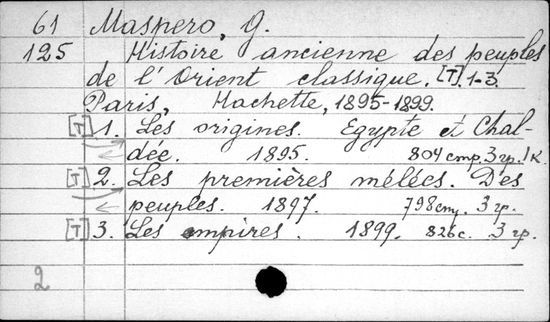 61 Maspero, G.
125 Histoire ancienne des peuples
de l'Orient classique. [T]. 1-3.
Paris, Hachette, 1895-1899.
[T] 1. Les origines. Egypte et Chal-
dée. 1895. 804 стр. 3 гр. 1 к
[T] 2. Les premières mêlées. Des
peuples. 1897. 798 стр. 3 гр.
[T] 3. Les empires. 1899. 826 с. 3 гр.
2